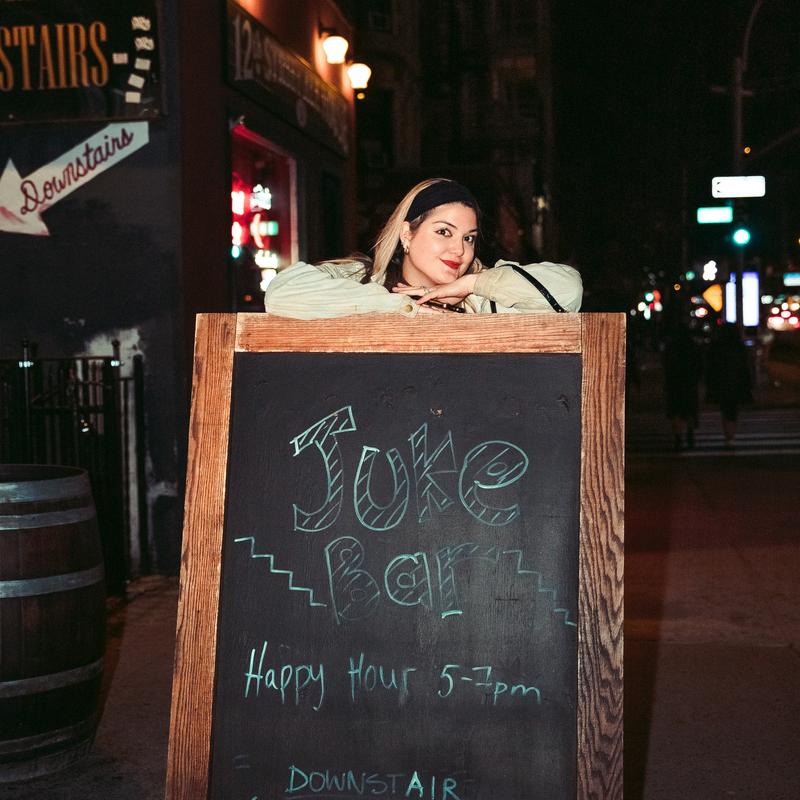 STAIRS
Downstairs
Juke
Bar
Happy Hour 5-7pm
DOWNSTAIR